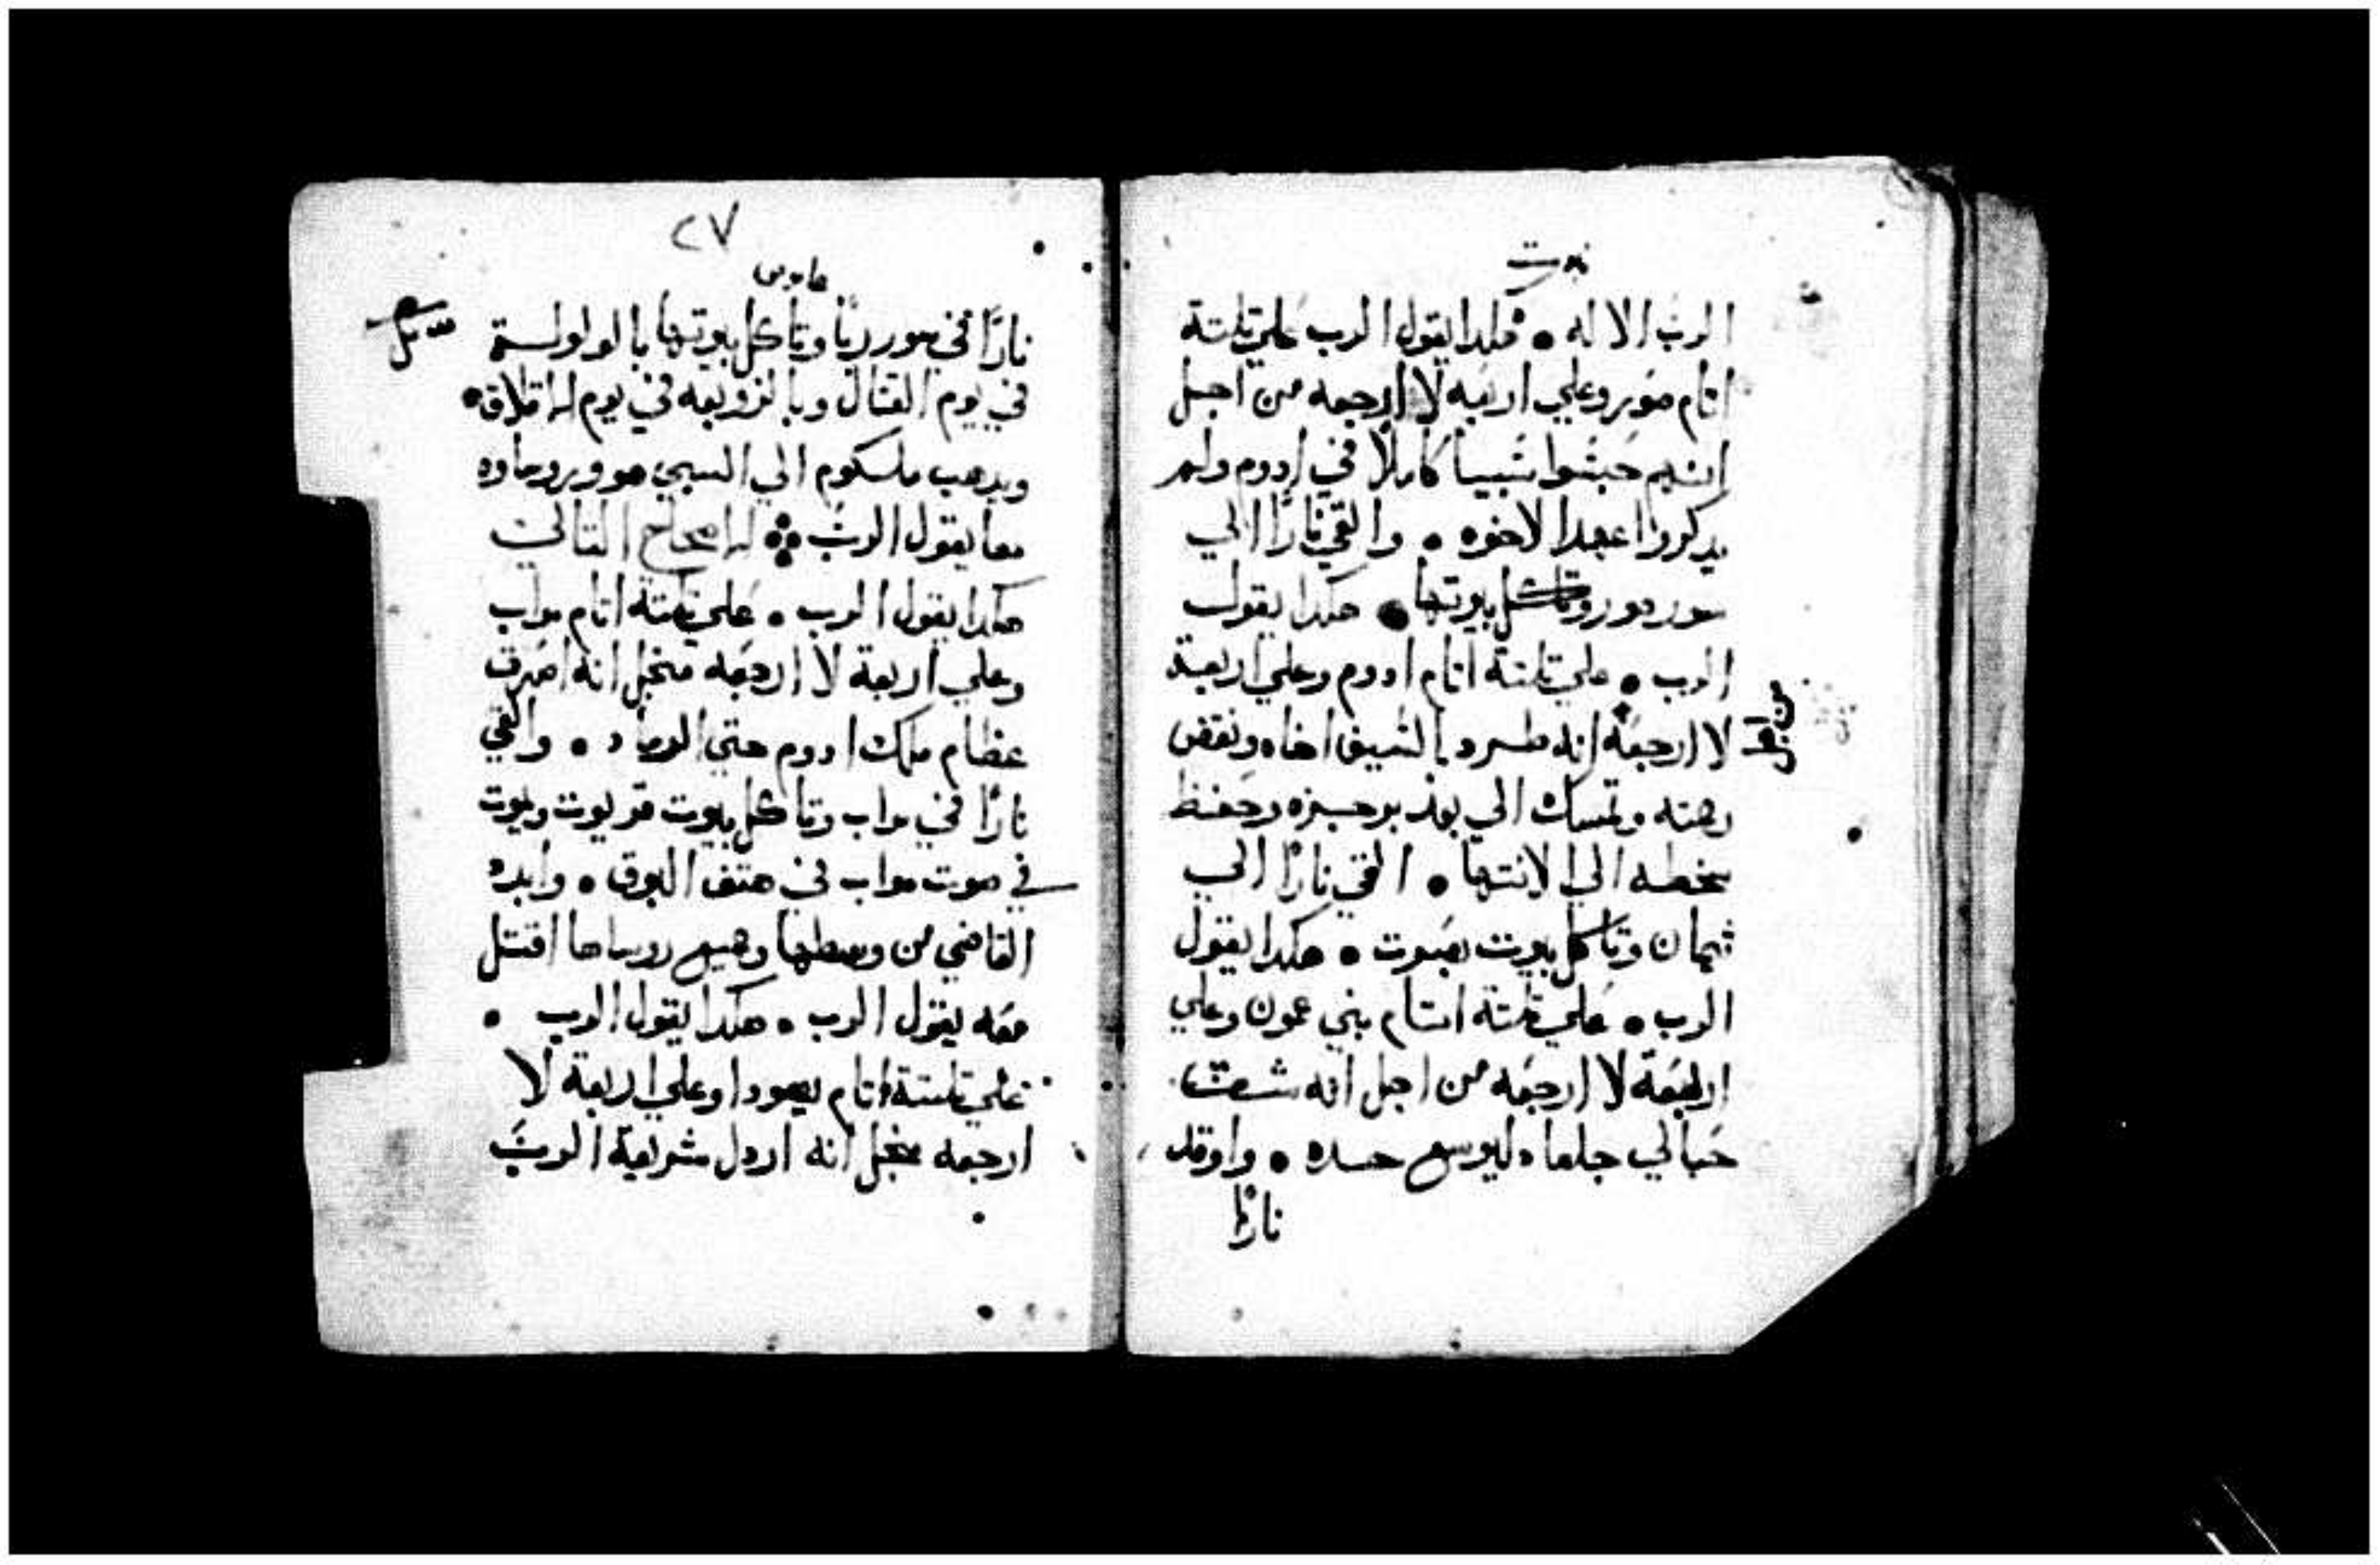 نبوت
الرب الاله • فلدا يقول الرب علي تلتة
اتام صور وعلي اربعه لا ارجعه من اجل
انهم حبسوا سبيا كاملا في ادوم ولم
يدكروا عهدا لاخوه • والقي نارًا الي
سور صور وتاكل بيوتها • هكدا يقول
الرب • علي تلتة اتام ادوم وعلي اربعة
لا ارجعه انه طرد بالسيف اخاه ونقض
من اجل
رهنه وتمسك الي بعد برجزه وحفظ
سخطه الي الانتها • القي نارًا الي
تيمان وتاكل بيوت بصوت • هكدا يقول
الرب • علي تلتة اتام بني عمون وعلي
اربعة لا ارجعه من اجل انه شقت
حبالي جلعاد ليوسع حده • واوقد
نارًا
٢٧
عاموص
نارًا في سور ربا وتاكل بيوتها بالولولة
في يوم القتال وبالزوبعه في يوم الاقلاق •
ويدهب ملكوم الي السبي هو وروساوه
معا يقول الرب الاصحاح التاني
هكدا يقول الرب • علي تلتة اتام مواب
وعلي اربعة لا ارجعه منجل انه احرق
عظام ملك ادوم حتي الرماد • والقي
نارًا في مواب وتاكل بيوت قريوت ويموت
في صوت مواب في هتف البوق • وابدد
القاضي من وسطها وجميع روساها اقتل
معه يقول الرب • هكدا يقول الرب •
علي تلتة اتام يهودا وعلي اربعة لا
ارجعه منجل انه اردل شريعة الرب